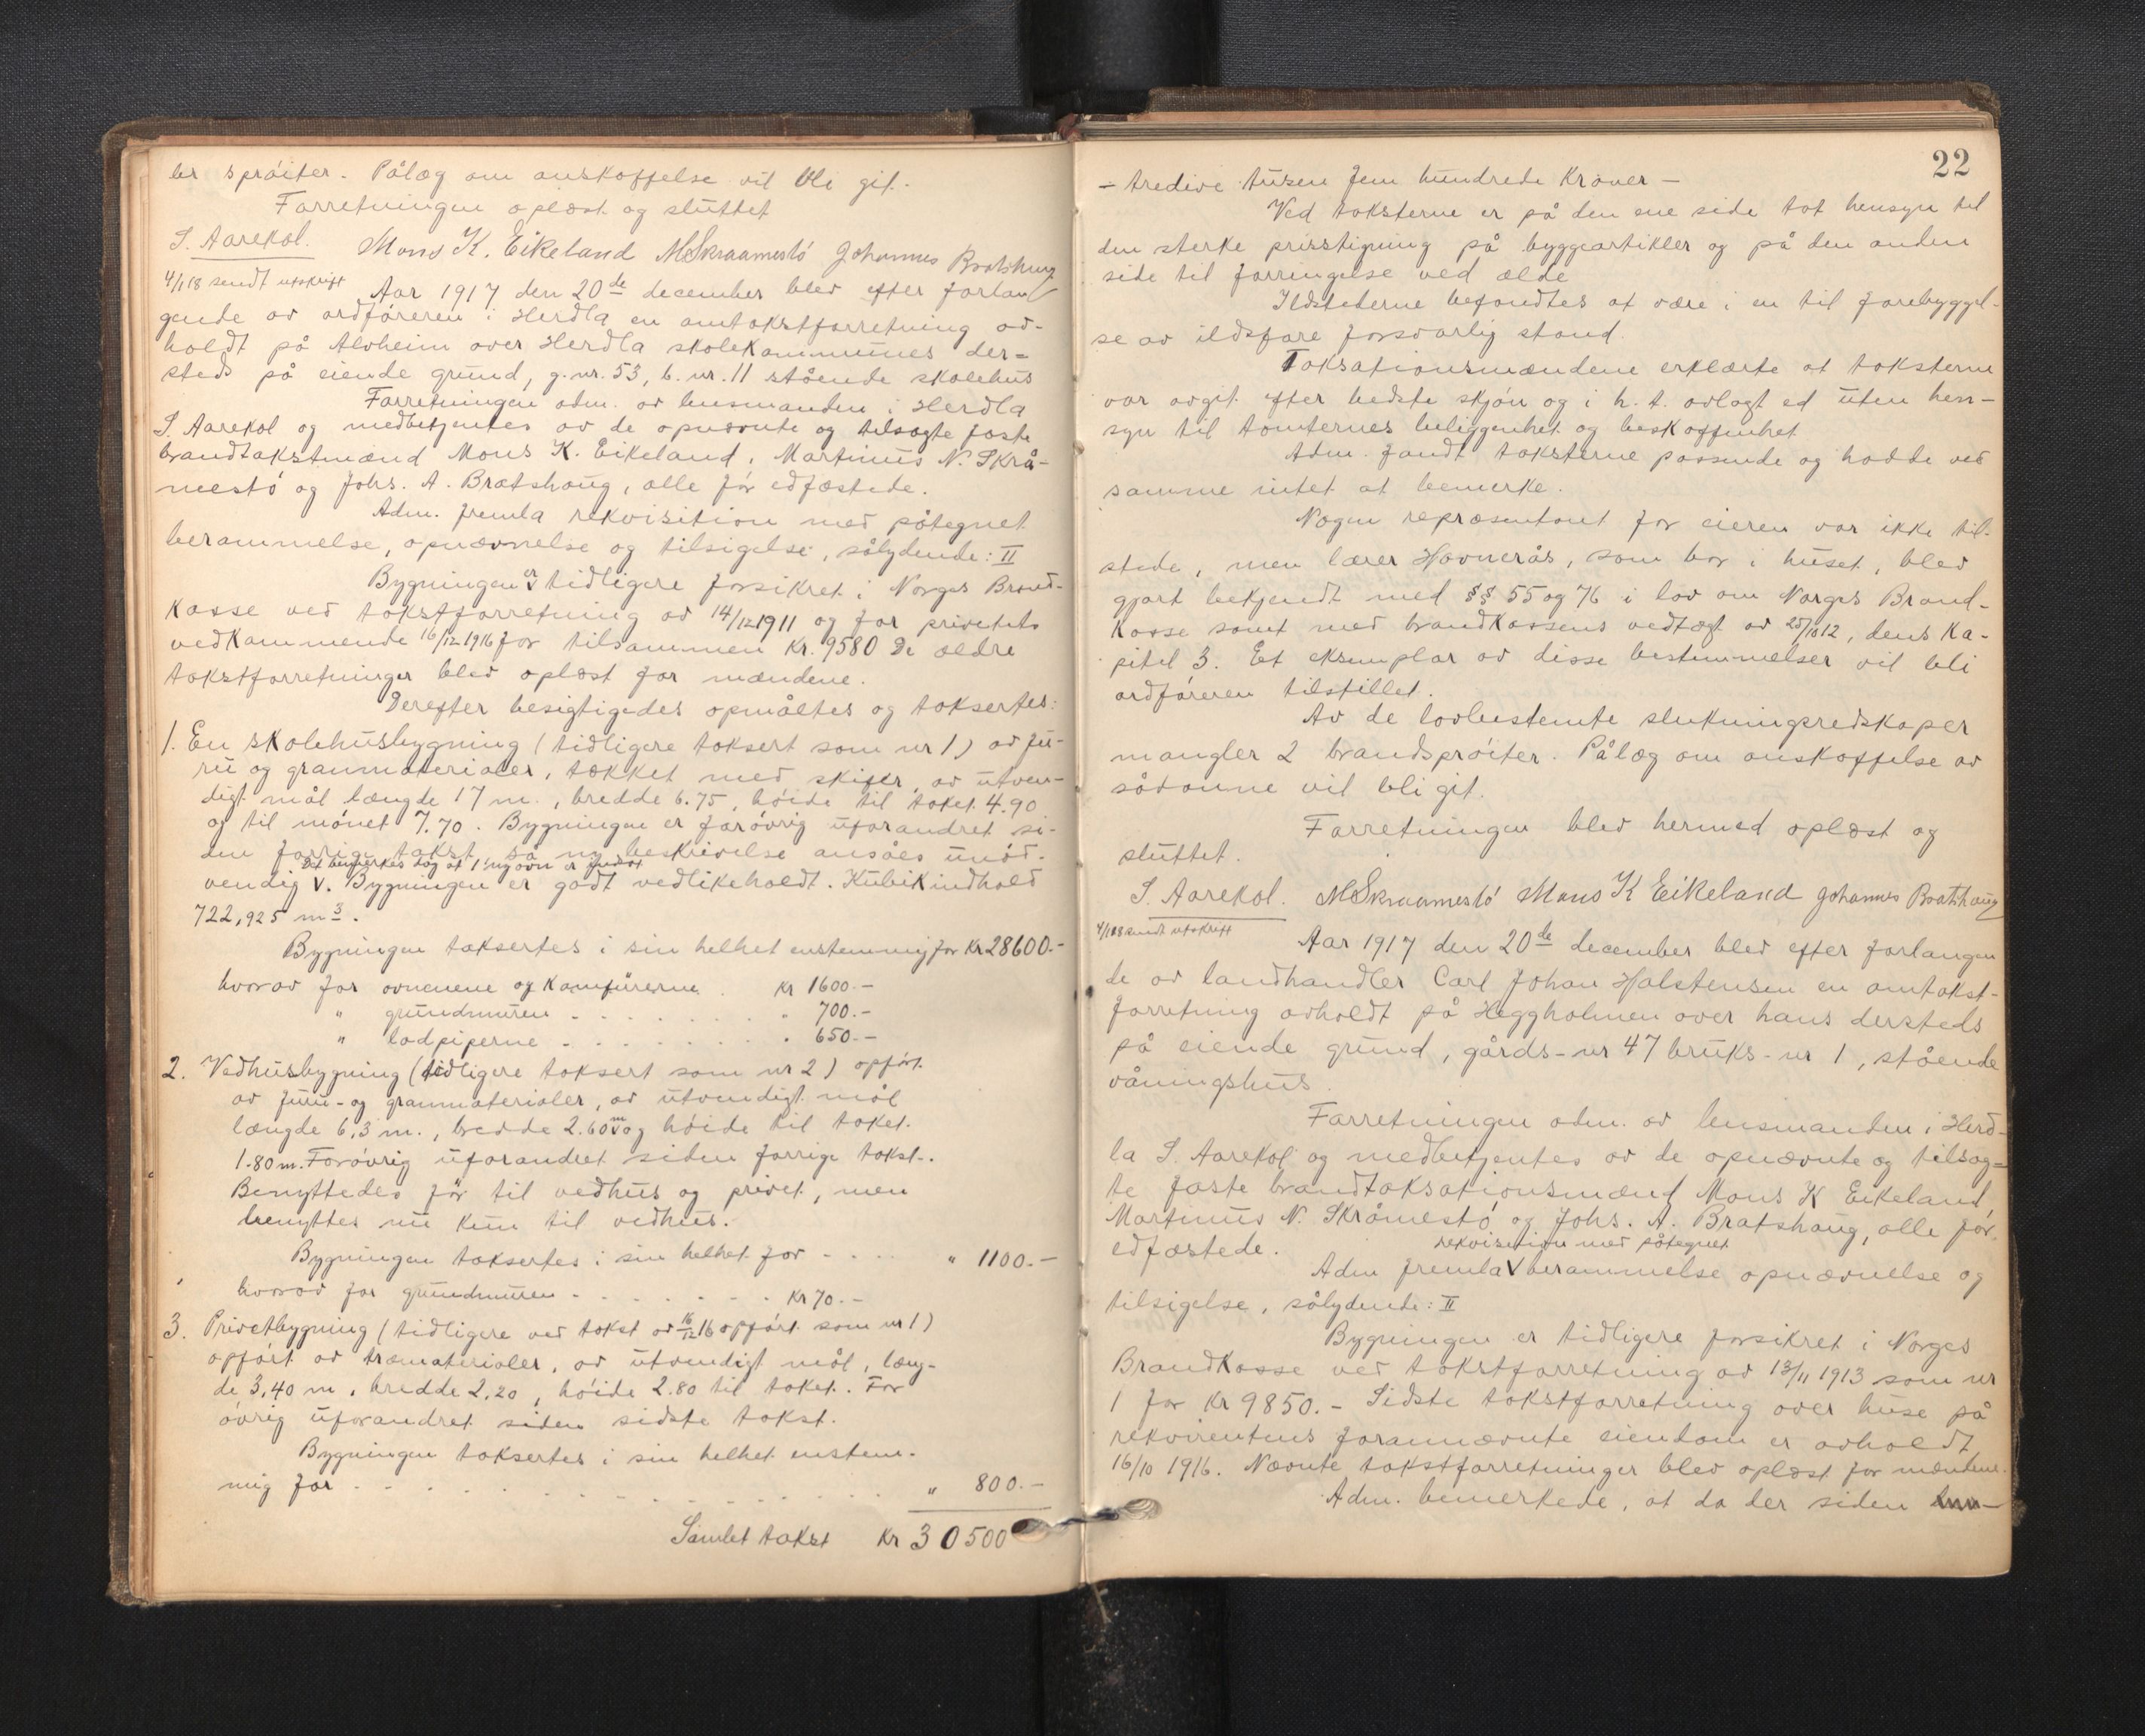 ler sprøiter. Pålæg om anskaffelse vil bli git.
Forretningen oplæst og sluttet
S. Aarekol. Mons K. Eikeland MSkraamestø Johannes Bratshaug
4/1 18 sendt utskrift Aar 1917 den 20de december blev efter forlan
gende av ordføreren i Herdla en omtakstforretning av-
holdt på Alvheim over Herdla skolekommunes der-
steds på eiende grund, g.nr. 53, b.nr. 11 stående skolehus
Forretningen adm. av lensmanden i Herdla
S. Aarekol og medbetjentes av de opnævnte og tilsagte faste
brandtakstmænd Mons K. Eikeland, Martinus N. Skrå-
mestø og Johs. A. Bratshaug, alle før edfæstede.
Adm. fremla rekvisition med påtegnet
berammelse, opnævnelse og tilsigelse, sålydende: II
Bygningen er tidligere forsikret i Norges Brand-
kasse ved takstforretning av 14/12 1911 og for privetets
vedkommende 16/12 1916 for tilsammen kr. 9580 De ældre
takstforretninger blev oplæst for mændene.
Derefter besigtigedes opmåltes og taksertes:
1. En skolehusbygning (tidligere taksert som nr 1) av fu-
ru og granmaterialer, tækket med skifer, av utven-
digt mål længde 17 m., bredde 6.75, høide til taket 4.90
og til mønet 7.70. Bygningen er forøvrig uforandret si-
den forrige takst så ny beskrivelse ansåes unød-
Det bemerkes dog at 1 ny ovn er indsat
vendig V. Bygningen er godt vedlikeholdt. Kubikindhold
722,925 m3.
Bygningen taksertes i sin helhet enstemmig for kr 28600.-
hvorav for ovnenene og komfürerne . kr 1600.-
" grundmuren - - - - - " 700.-
" lodpiperne - - - - - " 650.-
2. Vedhusbygning (tidligere taksert som nr 2) opført
av furu- og granmaterialer, av utvendigt mål
længde 6,3 m., bredde 2.60 m V og høide til taket
1.80 m. Forøvrig uforandret siden forrige takst.
Benyttedes før til vedhus og privet, men
benyttes nu kun til vedhus.
Bygningen taksertes i sin helhet for - - - - " 1100.-
hvorav for grundmuren - - - - - - - kr 70.-
3. Privetbygning (tidligere ved takst av 16/12 16 opført som nr 1)
opført av træmaterialer, av utvendigt mål, læng-
de 3,40 m, bredde 2,20, høide 2.80 til taket. For
øvrig uforandret siden sidste takst.
Bygningen taksertes i sin helhet enstem-
mig for - - - - - - - - - - " 800.-
Samlet takst kr 30500
22
- tredive tusen fem hundrede kroner -
Ved taksterne er på den ene side tat hensyn til
den sterke prisstigning på byggeartikler og på den anden
side til forringelse ved ælde
Ildstederne befandtes at være i en til forebyggel-
se av ildsfare forsvarlig stand.
Taksationsmændene erklærte at taksterne
var avgit efter bedste skjøn og i h. t. avlagt ed uten hen-
syn til tomternes beliggenhet og beskaffenhet
Adm. fandt taksterne passende og hadde ved
samme intet at bemerke.
Nogen repræsentant for eieren var ikke til-
stede, men lærer Havnerås, som bor i huset, blev
gjort bekjendt med §§ 55 og 76 i lov om Norges Brand-
kasse samt med brandkassens vedtægt av 25/10 12, dens ka-
pitel 3. Et eksemplar av disse bestemmelser vil bli
ordføreren tilstillet.
Av de lovbestemte slukningsredskaper
mangler 2 brandsprøiter. Pålæg om anskaffelse av
sådanne vil bli git.
Forretningen blev hermed oplæst og
sluttet.
S. Aarekol. MSkraamestø Mons K Eikeland Johannes Bratshaug
4/1 18 sendt utskrift Aar 1917 den 20de december blev efter forlangen
de av landhandler Carl Johan Halstensen en omtakst-
forretning avholdt på Heggholmen over hans dersteds
på eiende grund, gårds-nr 47 bruks-nr 1, stående
våningshus.
Forretningen adm. av lensmanden i Herd-
la S. Aarekol og medbetjentes av de opnævnte og tilsag-
te faste brandtaksationsmænd Mons K Eikeland,
Martinus N. Skråmestø og Johs. A. Bratshaug, alle før
edfæstede. rekvisition med påtegnet
Adm fremla V berammelse opnævnelse og
tilsigelse, sålydende: II
Bygningen er tidligere forsikret i Norges
Brandkasse ved takstforretning av 13/11 1913 som nr
1 for kr 9850.- Sidste takstforretning over huse på
rekvirentens forannævnte eiendom er avholdt
16/10 1916. Nævnte takstforretninger blev oplæst for mændene.
Adm. bemerkede, at da der siden